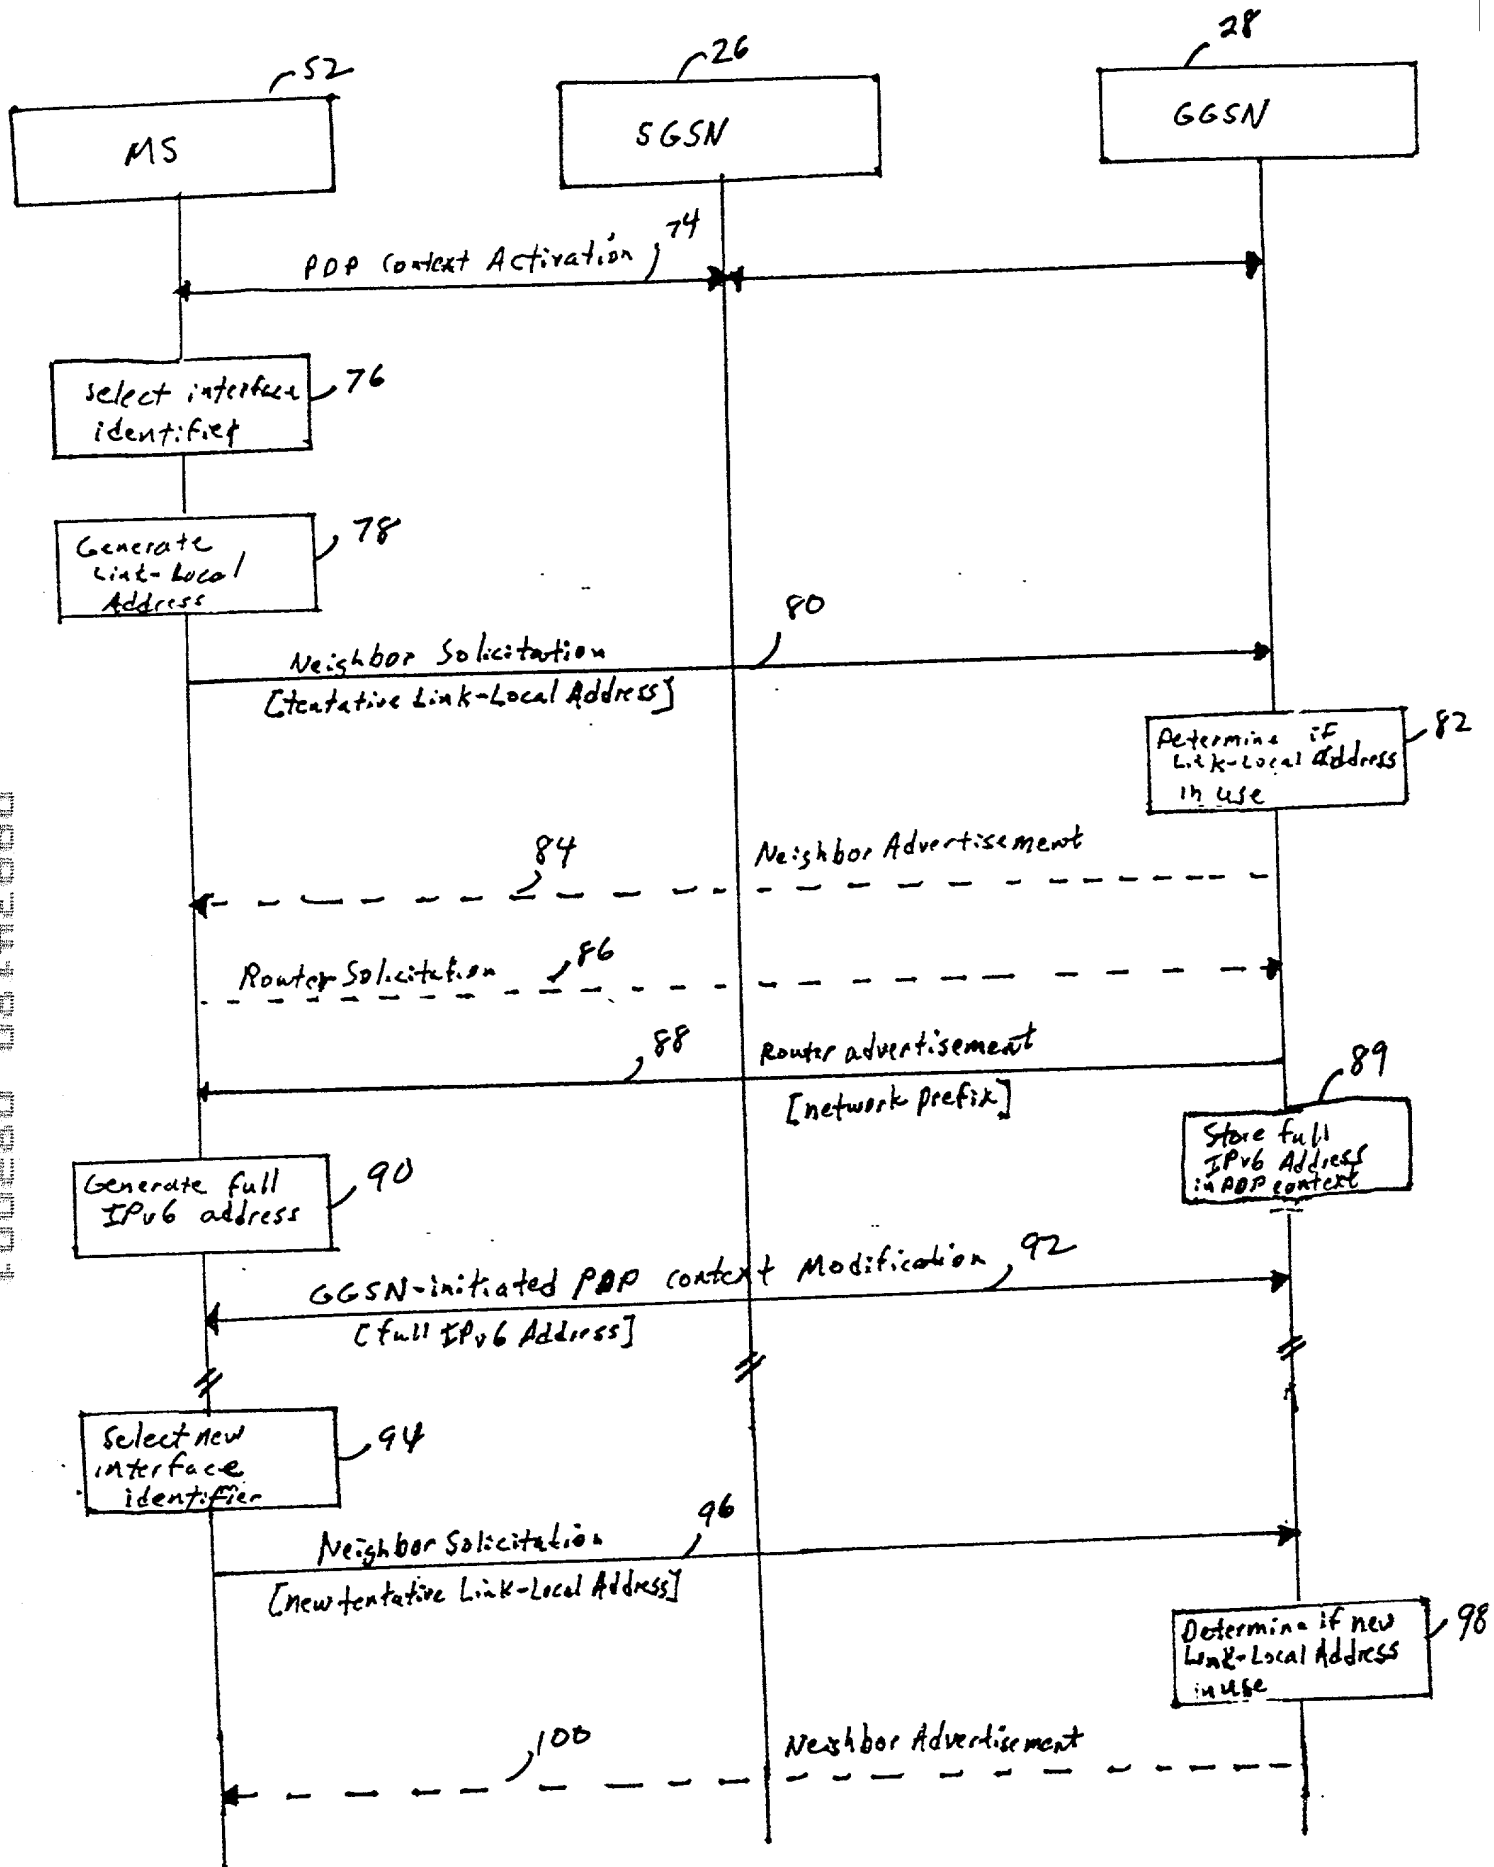 52
26
28
MS
SGSN
GGSN
PDP Context Activation
74
Select interface
identifier
76
Generate
Link-Local
Address
78
Neighbor Solicitation
80
[tentative Link-Local Address]
Determine if
Link-Local Address
in use
82
84
Neighbor Advertisement
Router Solicitation
86
88
Router advertisement
[network prefix]
89
Store full
IPv6 Address
in PDP context
Generate full
IPv6 address
90
GGSN-initiated PDP context Modification
92
[full IPv6 Address]
Select new
interface
identifier
94
Neighbor Solicitation
96
[new tentative Link-Local Address]
Determine if new
Link-Local Address
in use
98
100
Neighbor Advertisement